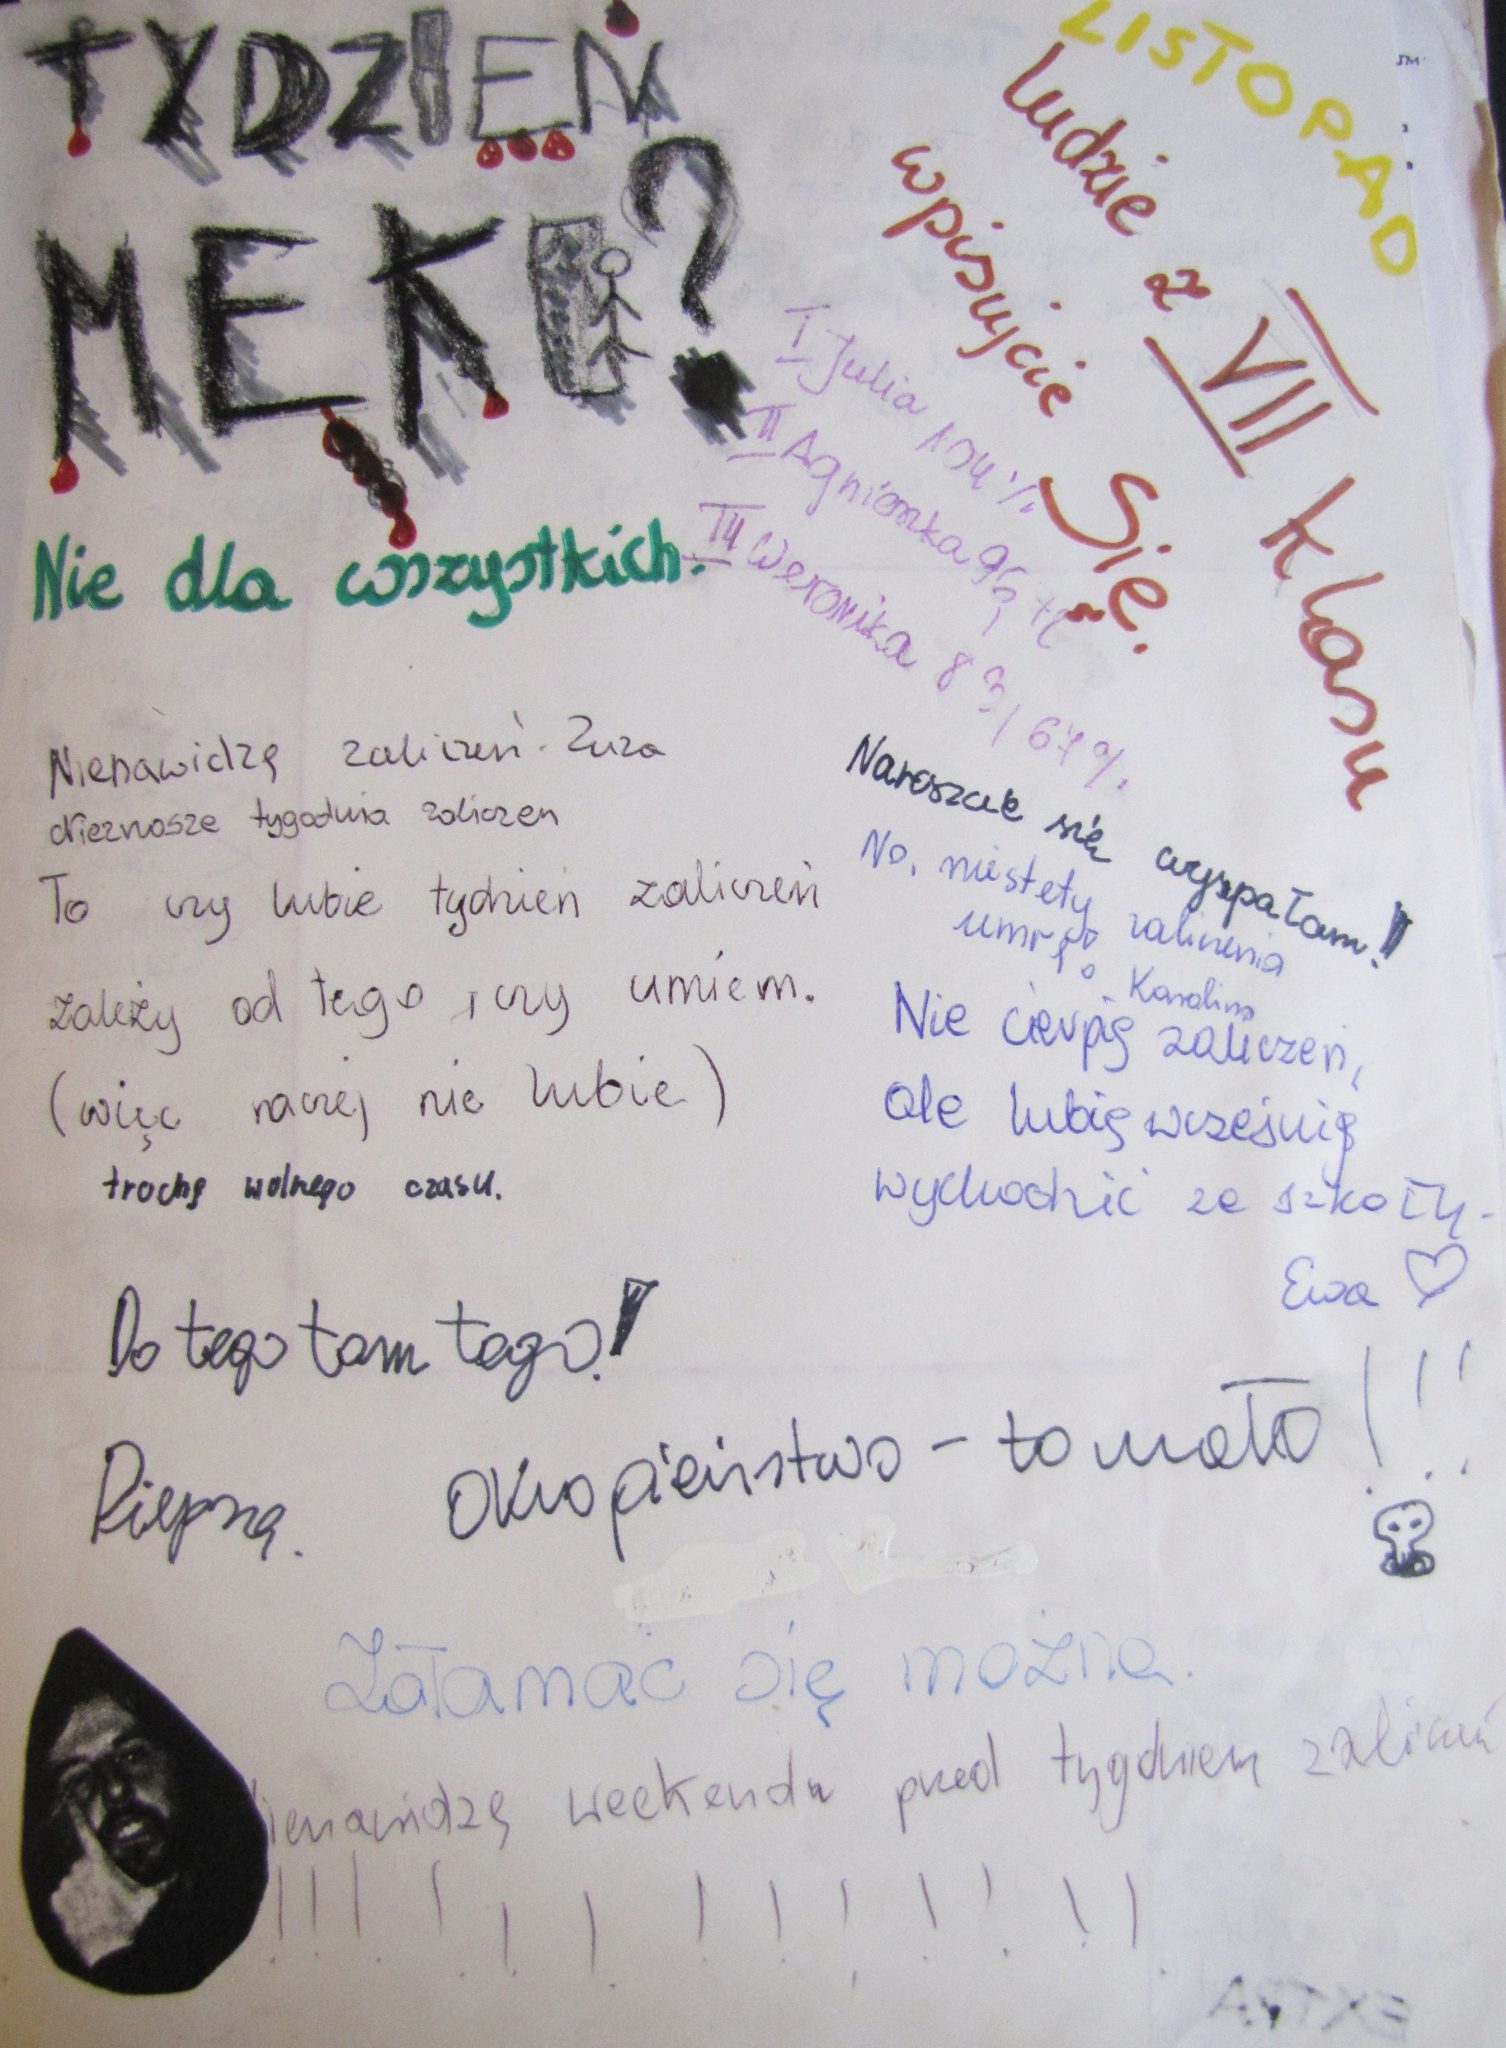 TYDZIEŃ
MĘKI?
Nie dla wszystkich.
LISTOPAD
Ludzie z VII klasu
wpisujcie
Się.
I Julia 104%
II Agnieszka 95,
III Weronika 83,67%.
Nienawidzę zaliczeń. Zuza
Nieznosze tygodnia zaliczen
To czy lubie tydzień zaliczeń
zależy od tego, czy umiem.
(więc raczej nie lubie)
trochę wolnego czasu.
Nareszcie się wyspałam!
No, niestety zaliczenia
umrę
Karolina
Nie cierpię zaliczeń,
ale lubię wcześnię
wychodzić ze szkoły.
Ewa
Do tego tam tego!
Rilpną.
Okropieństwo - to mało!!!
Załamać się można.
ienawidzę weekendu przed tygodniem zaliczeń
!!!!!!!!!!!!!
EXTRA